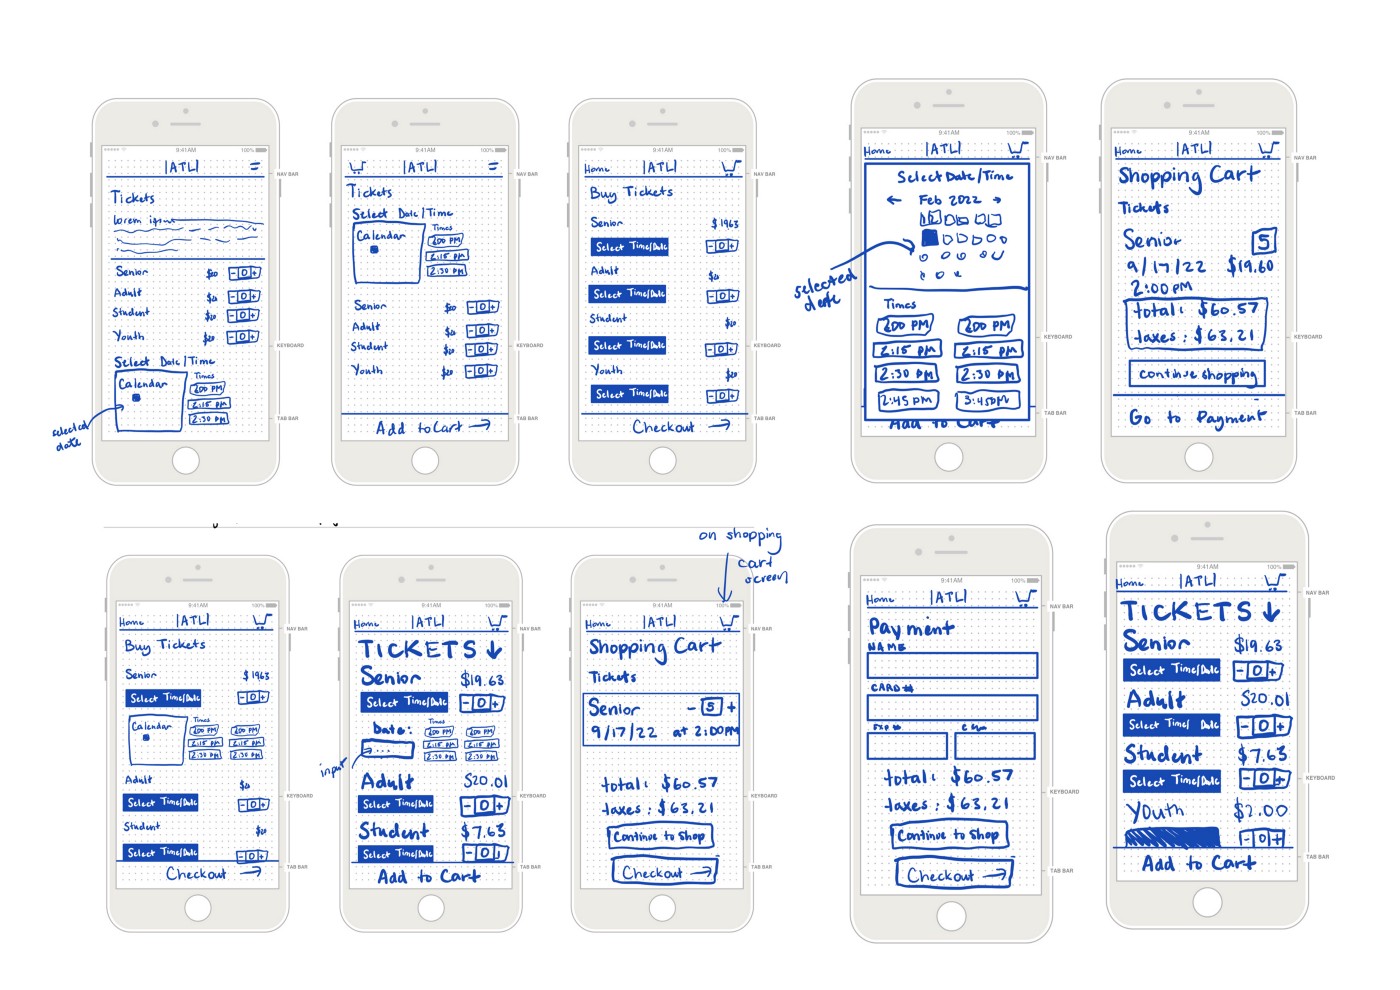 9:41AM 100%
|ATL|
NAV BAR
Tickets
lorem ipsum
Senior $20 - 0 +
Adult $20 - 0 +
Student $20 - 0 +
Youth $20 - 0 +
KEYBOARD
Select Date/Time
Calendar
Times
2:00 PM
2:15 PM
2:30 PM
TAB BAR
selected
date
9:41AM 100%
|ATL|
NAV BAR
Tickets
Select Date/Time
Calendar
Times
2:00 PM
2:15 PM
2:30 PM
Senior $20 - 0 +
Adult $20 - 0 +
Student $20 - 0 +
KEYBOARD
Youth $20 - 0 +
TAB BAR
Add to Cart →
9:41AM 100%
Home |ATL|
NAV BAR
Buy Tickets
Senior $1963
Select Time/Date - 0 +
Adult
Select Time/Date - 0 +
Student $20
Select Time/Date - 0 +
KEYBOARD
Youth $20
Select Time/Date - 0 +
TAB BAR
Checkout →
9:41AM 100%
Home |ATL|
NAV BAR
Select Date/Time
← Feb 2022 →
selected
date
Times
2:00 PM 2:00 PM
KEYBOARD
2:15 PM 2:15 PM
2:30 PM 2:30 PM
2:45 PM 3:45PM
TAB BAR
Add to Cart
9:41AM 100%
Home |ATL|
NAV BAR
Shopping Cart
Tickets
Senior 5
9/17/22 $19.60
2:00 PM
total: $60.57
taxes: $63.21
KEYBOARD
continue shopping
TAB BAR
Go to Payment
9:41AM 100%
Home |ATL|
NAV BAR
Buy Tickets
Senior $1963
Select Time/Date - 0 +
Calendar
Times
2:00 PM 2:00 PM
2:15 PM 2:15 PM
2:30 PM 2:30 PM
Adult
KEYBOARD
Select Time/Date - 0 +
Student $20
Select Time/Date - 0 +
TAB BAR
Checkout →
9:41AM 100%
Home |ATL|
NAV BAR
TICKETS ↓
Senior $19.63
Select Time/Date - 0 +
Date:
...
input
Times
2:00 PM 2:00 PM
2:15 PM 2:15 PM
2:30 PM 2:30 PM
Adult $20.01
KEYBOARD
Select Time/Date - 0 +
Student $7.63
Select Time/Date - 0
TAB BAR
Add to Cart
on shopping
cart
screen
9:41AM 100%
Home |ATL|
NAV BAR
Shopping Cart
Tickets
Senior - 5 +
9/17/22 at 2:00PM
total: $60.57
KEYBOARD
taxes: $63.21
Continue to Shop
TAB BAR
Checkout →
9:41AM 100%
Home |ATL|
NAV BAR
Payment
NAME
CARD #
total: $60.57
KEYBOARD
taxes: $63.21
Continue to Shop
TAB BAR
Checkout →
9:41AM 100%
Home |ATL|
NAV BAR
TICKETS ↓
Senior $19.63
Select Time/Date - 0 +
Adult $20.01
Select Time/ Date - 0 +
Student $7.63
KEYBOARD
Select Time/Date - 0 +
Youth $2.00
- 0 +
TAB BAR
Add to Cart